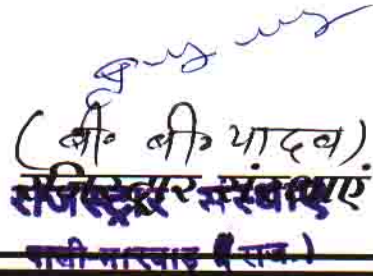 (बी० बी० यादव)
रजिस्ट्रार संस्थाएं
पाली-मारवाड़ (राज.)